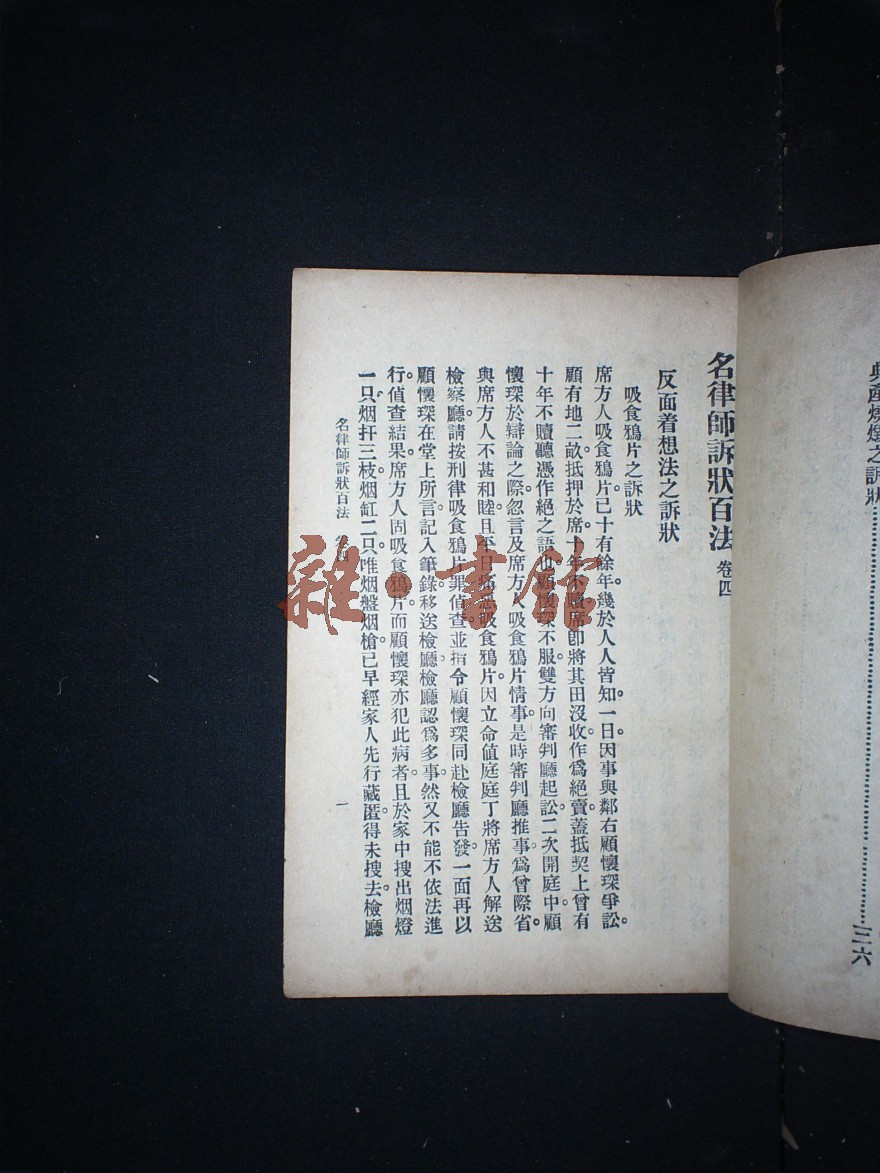 典產燒燬之訴狀……三六
名律師訴狀百法 卷四
反面着想法之訴狀
吸食鴉片之訴狀
席方人吸食鴉片已十有餘年。幾於人人皆知。一日因事與鄰右顧懷琛爭訟。
顧有地二畝抵押於席。十年不贖。席卽將其田沒收。作爲絕賣。蓋抵契上曾有
十年不贖聽憑作絕之語也。顧懷琛不服。雙方向審判廳起訟。二次開庭中。顧
懷琛於辯論之際。忽言及席方人吸食鴉片情事。是時審判廳推事爲曾際省。
與席方人不甚和睦。且平日痛惡吸食鴉片。因立命值庭庭丁將席方人解送
檢察廳。請按刑律吸食鴉片罪偵查。並指令顧懷琛同赴檢廳告發。一面再以
顧懷琛在堂上所言。記入筆錄。移送檢廳。檢廳認爲多事。然又不能不依法進
行。偵查結果。席方人固吸食鴉片。而顧懷琛亦犯此病者。且於家中搜出烟燈
一只。烟扦三枝。烟缸二只。惟烟盤烟槍。已早經家人先行藏匿。得未搜去。檢廳
名律師訴狀百法 卷四 一
雜·書館